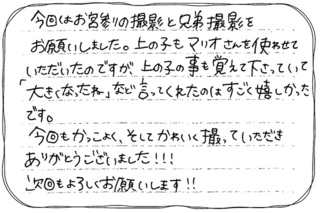 今回はお宮参りの撮影と兄弟撮影を
お願いしました。上の子もマリオさんを使わせて
いただいたのですが、上の子の事も覚えて下さっていて
「大きくなったね」など言ってくれたのはすごく嬉しかった
です。
今回もかっこよく、そしてかわいく撮っていただき
ありがとうございました!!!
次回もよろしくお願いします!!